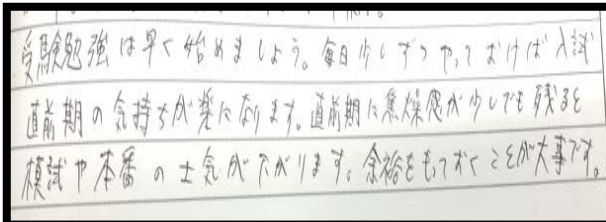 受験勉強は早く始めましょう。毎日少しずつやっておけば入試
直前期の気持ちが楽になります。直前期に焦燥感が少しでも残ると
模試や本番の士気が下がります。余裕をもっておくことが大事です。